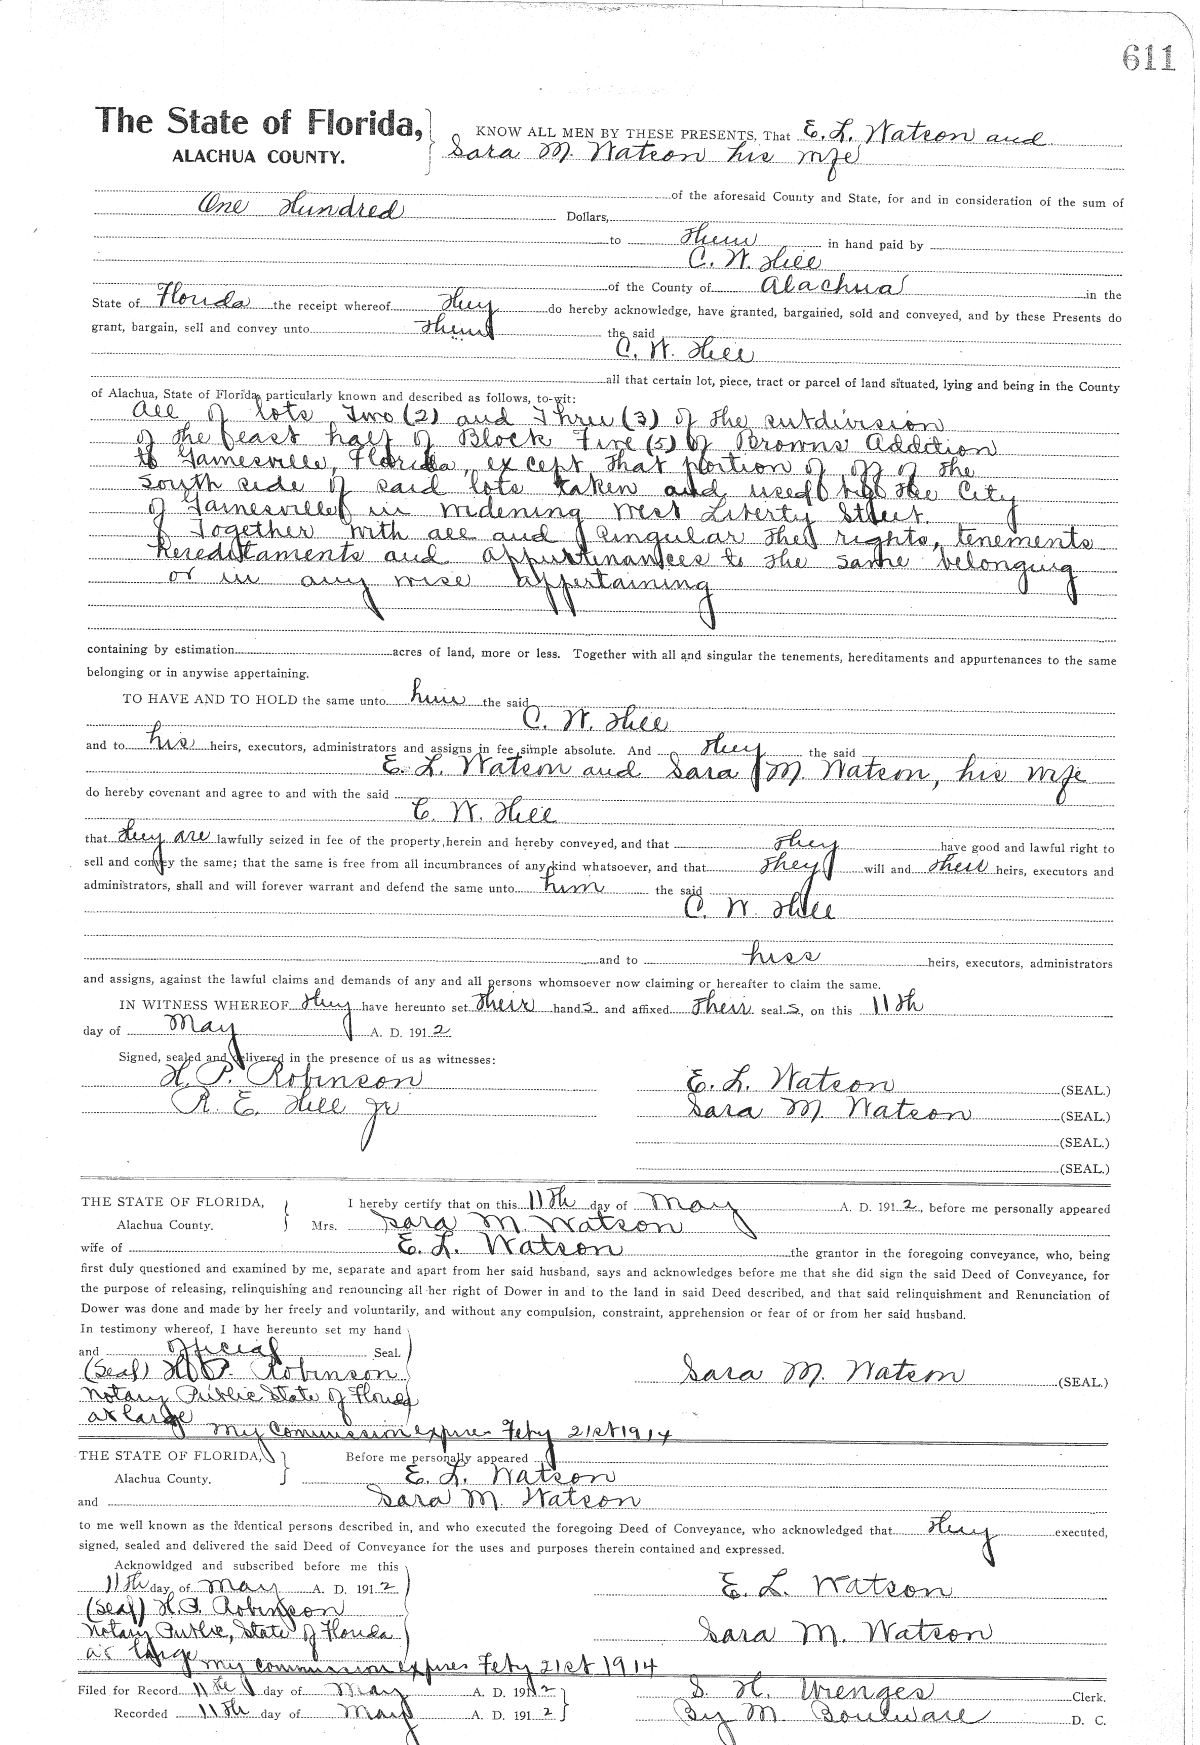 611
The State of Florida,
ALACHUA COUNTY.
KNOW ALL MEN BY THESE PRESENTS, That E. L. Watson and
Sara M. Watson his wife
of the aforesaid County and State, for and in consideration of the sum of
One Hundred Dollars,
to them in hand paid by
C. W. Hill
of the County of Alachua in the
State of Florida the receipt whereof they do hereby acknowledge, have granted, bargained, sold and conveyed, and by these Presents do
grant, bargain, sell and convey unto them the said
C. W. Hill
all that certain lot, piece, tract or parcel of land situated, lying and being in the County
of Alachua, State of Florida, particularly known and described as follows, to-wit:
All of lots Two (2) and Three (3) of the subdivision
of the east half of Block Five (5) of Browns Addition
to Gainesville, Florida, except that portion of off of the
South side of said lots taken and used by the City
of Gainesville in widening West Liberty Street.
Together with all and singular the rights, tenements
hereditaments and appurtenances to the same belonging
or in any wise appertaining
containing by estimation acres of land, more or less. Together with all and singular the tenements, hereditaments and appurtenances to the same
belonging or in anywise appertaining.
TO HAVE AND TO HOLD the same unto him the said
C. W. Hill
and to his heirs, executors, administrators and assigns in fee simple absolute. And they the said
E. L. Watson and Sara M. Watson, his wife
do hereby covenant and agree to and with the said
C. W. Hill
that they are lawfully seized in fee of the property herein and hereby conveyed, and that they have good and lawful right to
sell and convey the same; that the same is free from all incumbrances of any kind whatsoever, and that they will and their heirs, executors and
administrators, shall and will forever warrant and defend the same unto him the said
C. W. Hill
and to hiss heirs, executors, administrators
and assigns, against the lawful claims and demands of any and all persons whomsoever now claiming or hereafter to claim the same.
IN WITNESS WHEREOF they have hereunto set their hands and affixed their seals, on this 11th
day of May A. D. 1912
Signed, sealed and delivered in the presence of us as witnesses:
H. P. Robinson E. L. Watson (SEAL.)
R. E. Hill Jr Sara M. Watson (SEAL.)
(SEAL.)
(SEAL.)
THE STATE OF FLORIDA, I hereby certify that on this 11th day of May A. D. 1912, before me personally appeared
Alachua County. Mrs. Sara M. Watson
wife of E. L. Watson the grantor in the foregoing conveyance, who, being
first duly questioned and examined by me, separate and apart from her said husband, says and acknowledges before me that she did sign the said Deed of Conveyance, for
the purpose of releasing, relinquishing and renouncing all her right of Dower in and to the land in said Deed described, and that said relinquishment and Renunciation of
Dower was done and made by her freely and voluntarily, and without any compulsion, constraint, apprehension or fear of or from her said husband.
In testimony whereof, I have hereunto set my hand
and official Seal.
(Seal) H. P. Robinson Sara M. Watson (SEAL.)
Notary Public State of Florida
at large
My Commission expires Feby 21st 1914
THE STATE OF FLORIDA, Before me personally appeared
Alachua County. E. L. Watson
and Sara M. Watson
to me well known as the identical persons described in, and who executed the foregoing Deed of Conveyance, who acknowledged that they executed,
signed, sealed and delivered the said Deed of Conveyance for the uses and purposes therein contained and expressed.
Acknowldged and subscribed before me this
11th day of May A. D. 1912 E. L. Watson
(Seal) H. P. Robinson
Notary Public, State of Florida Sara M. Watson
at large My commission expires Feby 21st 1914
Filed for Record 11th day of May A. D. 1912 S. H. Wienges Clerk.
Recorded 11th day of May A. D. 1912 By M. Boulware D. C.